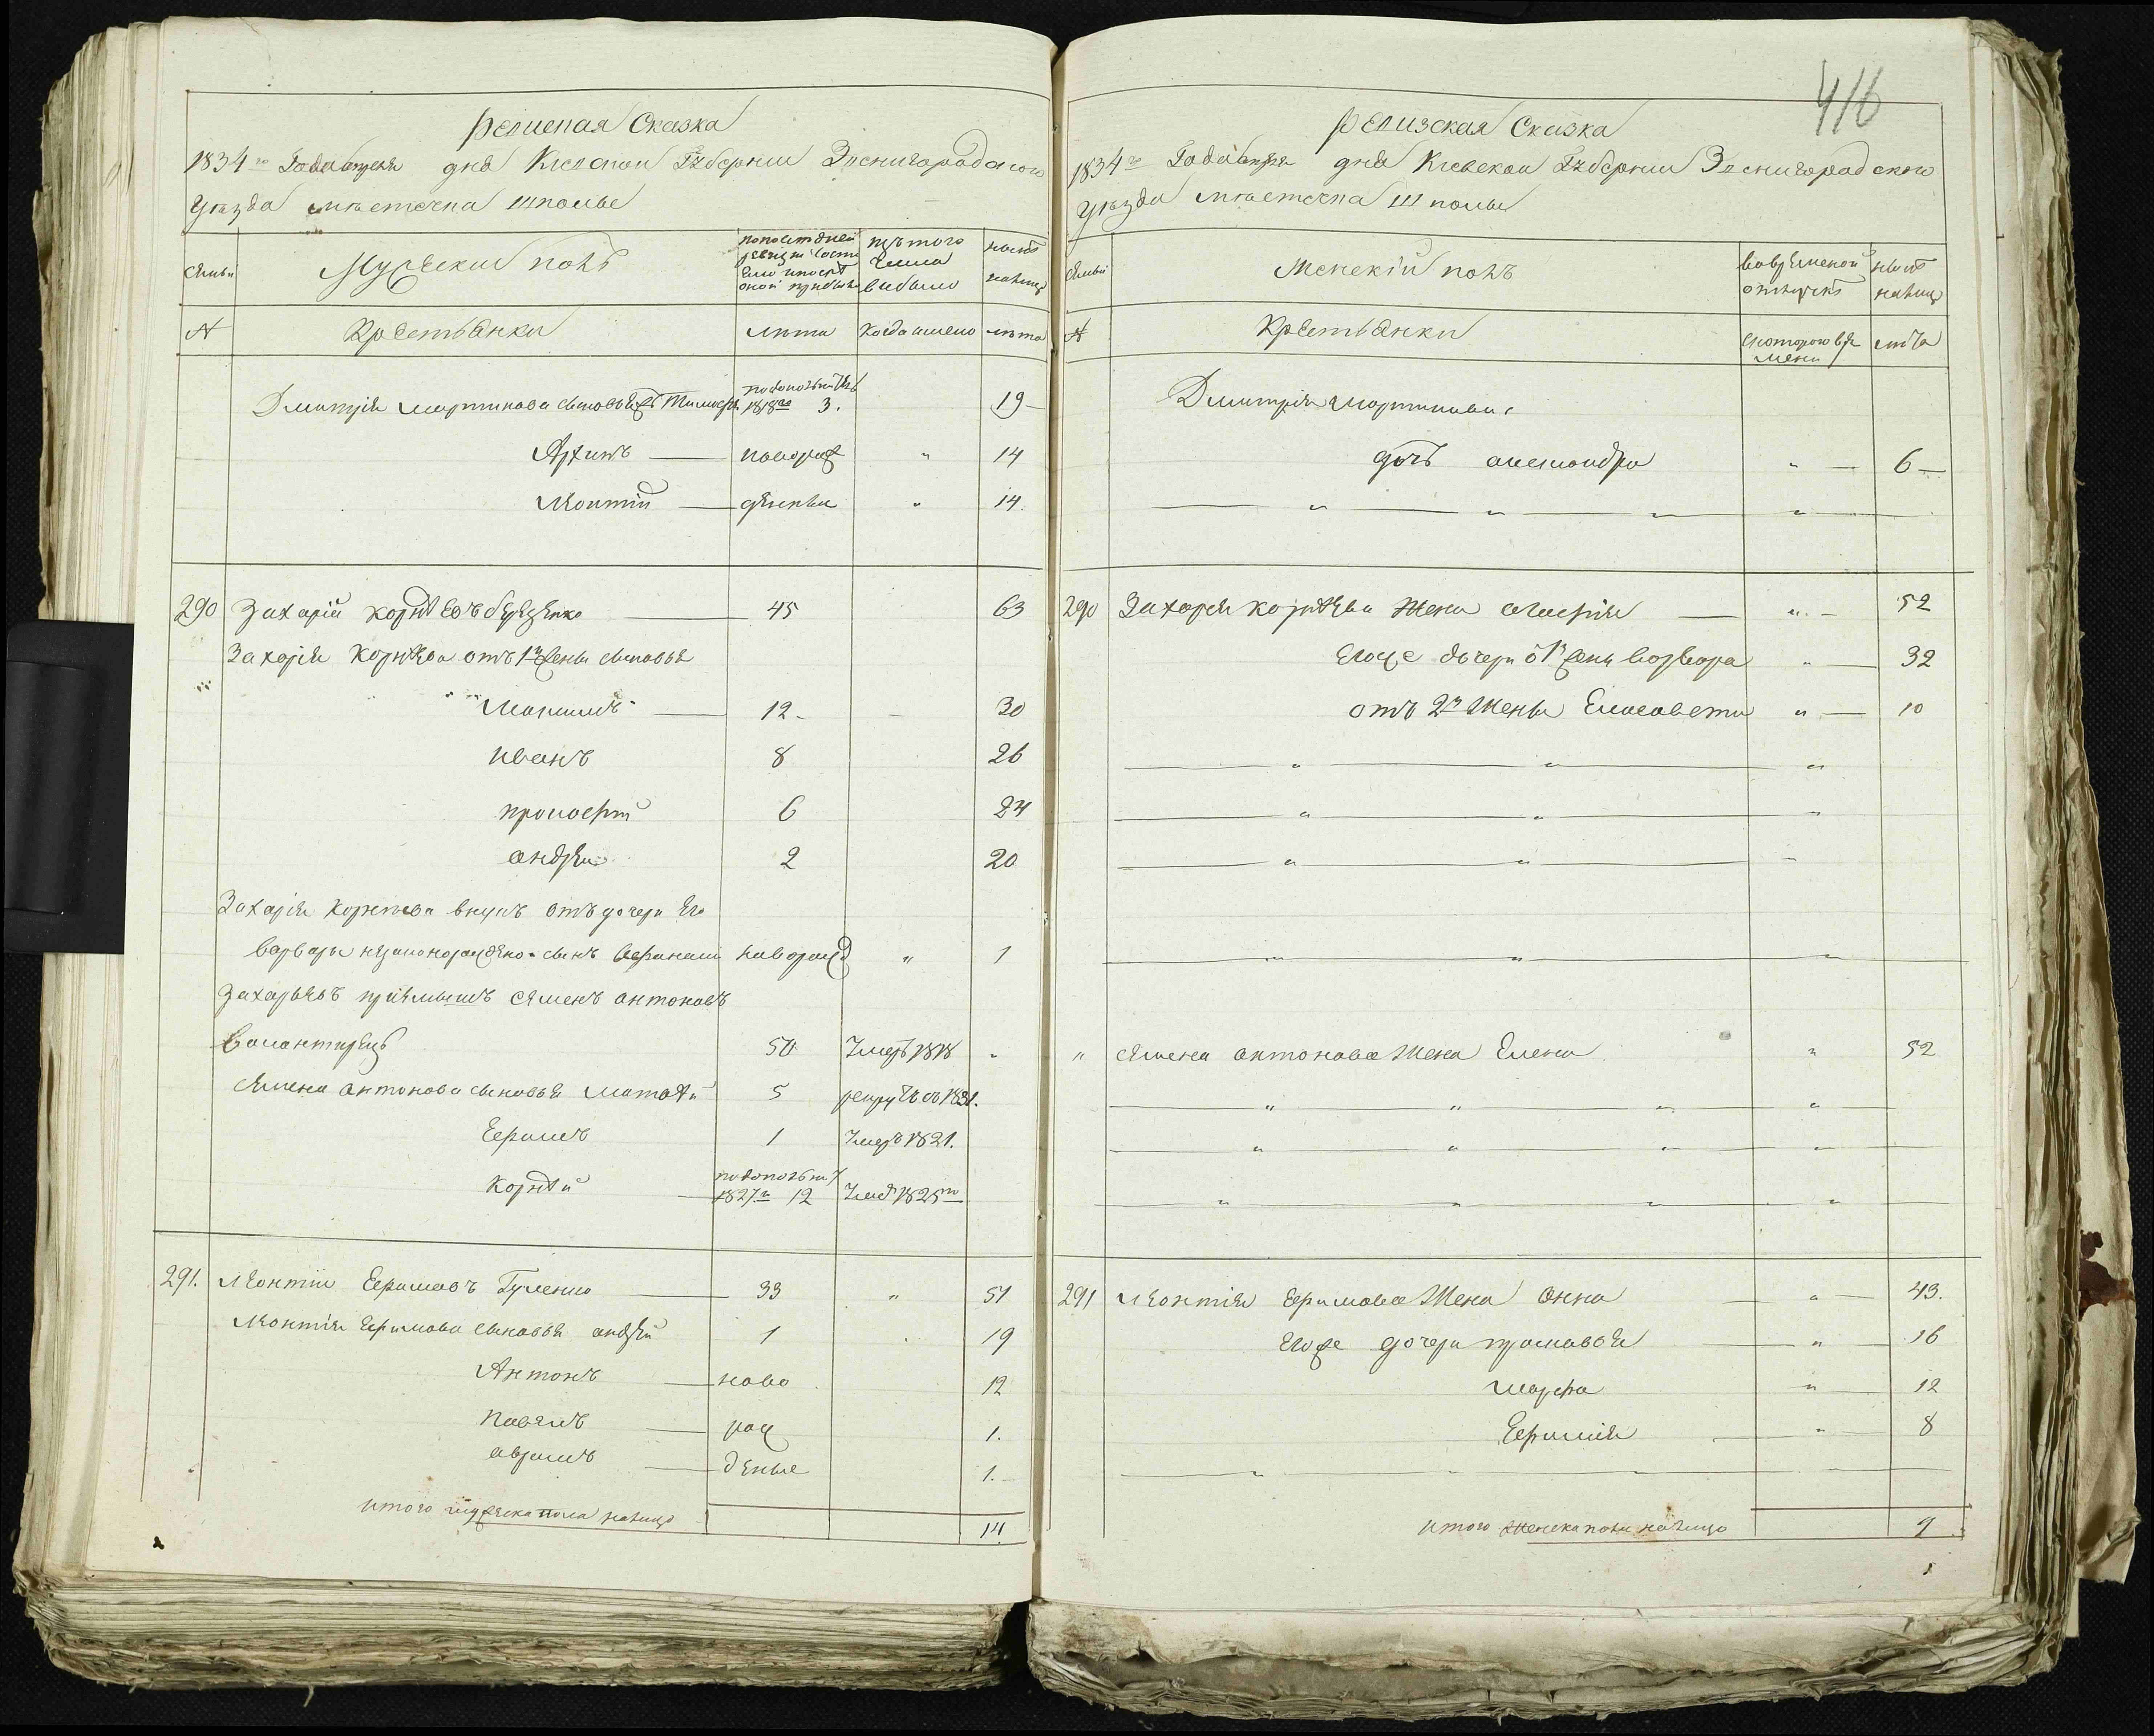 Ревиская Сказка
1834го Года апреля дня Киевской Губернии Звенигородского
Уезда местечка Шполы
Семьи
Мужеский полъ
по последней ревизии состояло и после оной прибыло
изъ того числа выбыло
ныне налицо
№
Крестьянки
лета
когда имено
лета
Дмитрія Мартинова сыновья Тимофей
по дополнит. 1818го 3.
19
Архипъ — новорож 〃 14
Леонтій — денные 〃 14.
290 Захарій Корнѣевъ — 45 63
Захарія Корнѣева отъ 1й жены сыновья
Максимъ — 12 — 30
иванъ 8 26
прокофій 6 24
андрей 2 20
Захарія Корнѣева внукъ отъ дочери его
варвары незаконорожденой сынъ Афанасій новорожд 〃 1
Захарьевъ приемышъ Семенъ антоновъ
50 Умеръ 1818 〃
Семена антонова сыновья Матвѣй 5 рекрутъ въ 1831.
Ефимъ 1 Умеръ 1821.
Корнѣй — по дополнит 1827го 12 Умеръ 1825го
291. Леонтій Ефимовъ Гуленко — 33 〃 51
Леонтія Ефимова сыновья андрей 1 19
Антонъ — ново 12
павелъ — рож 1.
аврамъ — денные 1.
итого мужеска пола налицо 14.
416
Ревизская Сказка
1834го Года апреля дня Киевской Губернии Звенигородского
Уезда местечка Шполы
Семьи
Женскій полъ
во временной отлучке
ныне налицо
№
Крестьянки
с которого времени
лета
Дмитрія Мартинова
дочь александра 〃 — 6 —
290 Захарія Корнѣева жена — 〃 — 52
Егоже дочери о 1й жены варвара 〃 — 32
отъ 2й жены Елисавета 〃 — 10
〃 Семена антонова жена Елена 〃 52
291 Леонтія Ефимова жена анна — 〃 — 43.
Егоже дочери прасковья — 〃 — 16
марфа 〃 — 12
Ефимія — 〃 — 8
итого женска пола налицо 9